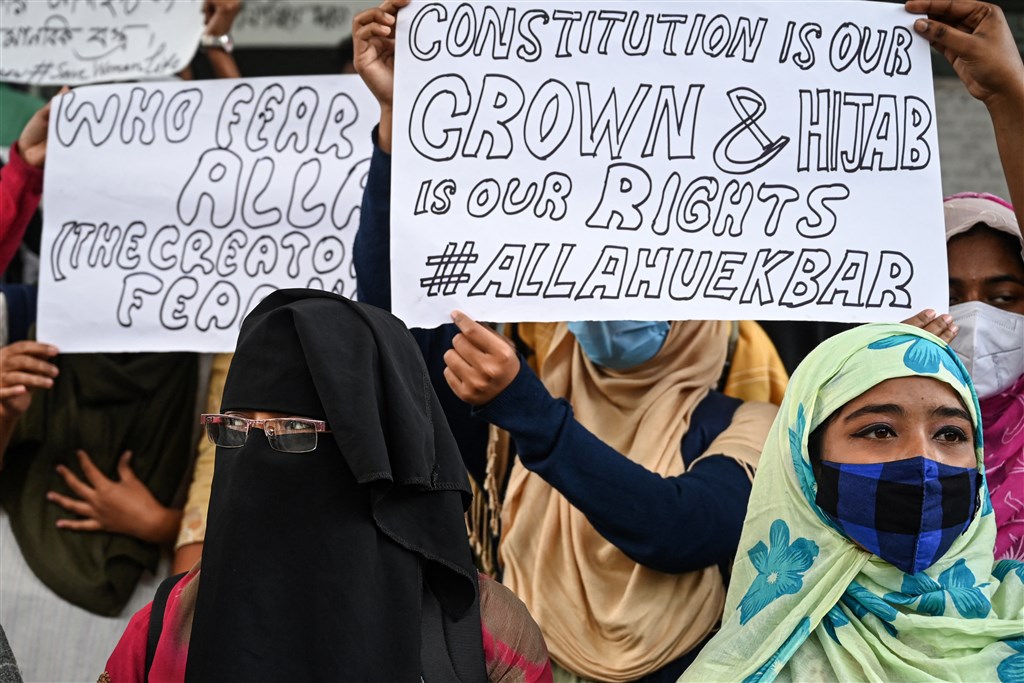 #Save Woman Life
WHO FEAR
ALLA
(THE CREATO
FEAR
CONSTITUTION IS OUR
GROWN & HIJAB
IS OUR RIGHTS
#ALLAHUEKBAR